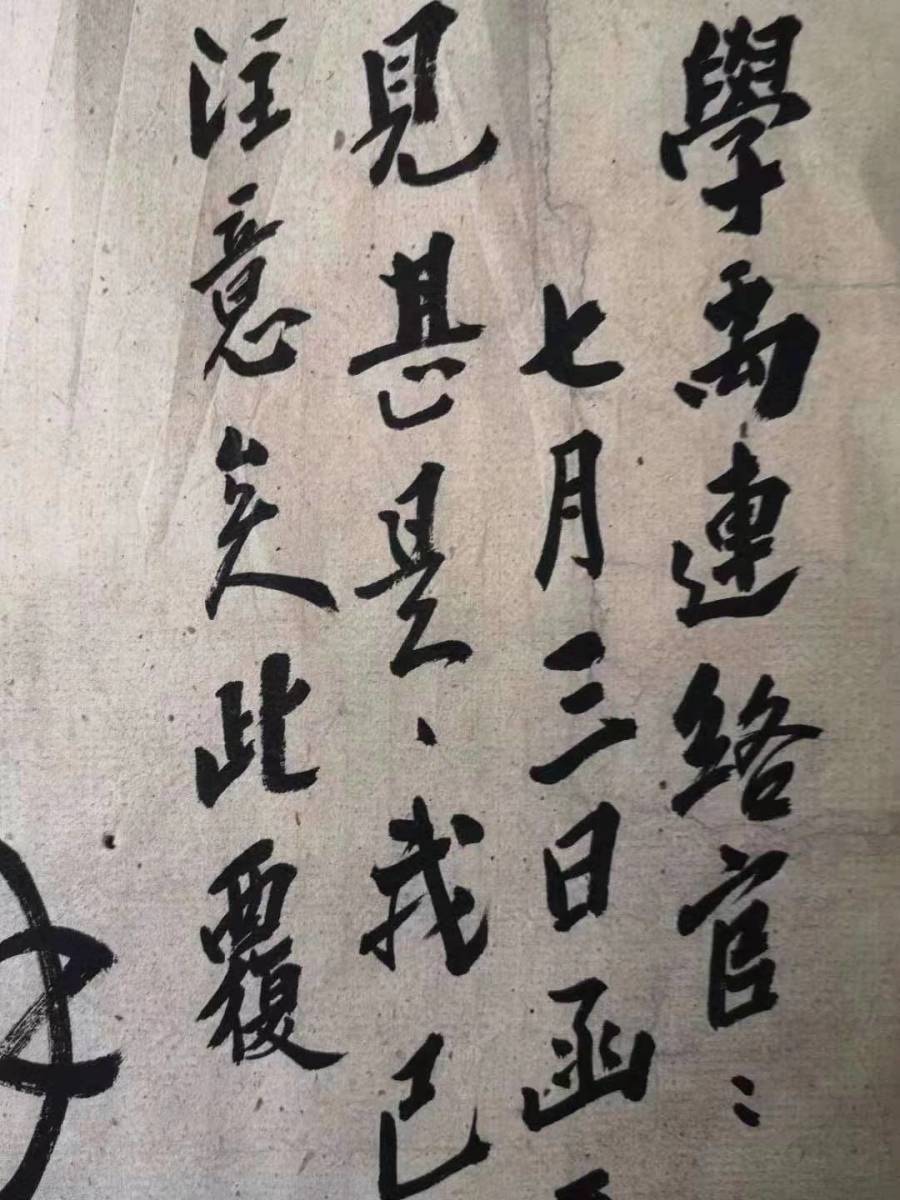 學禹連絡官：
七月三日函
見甚是、我已
注意矣此覆